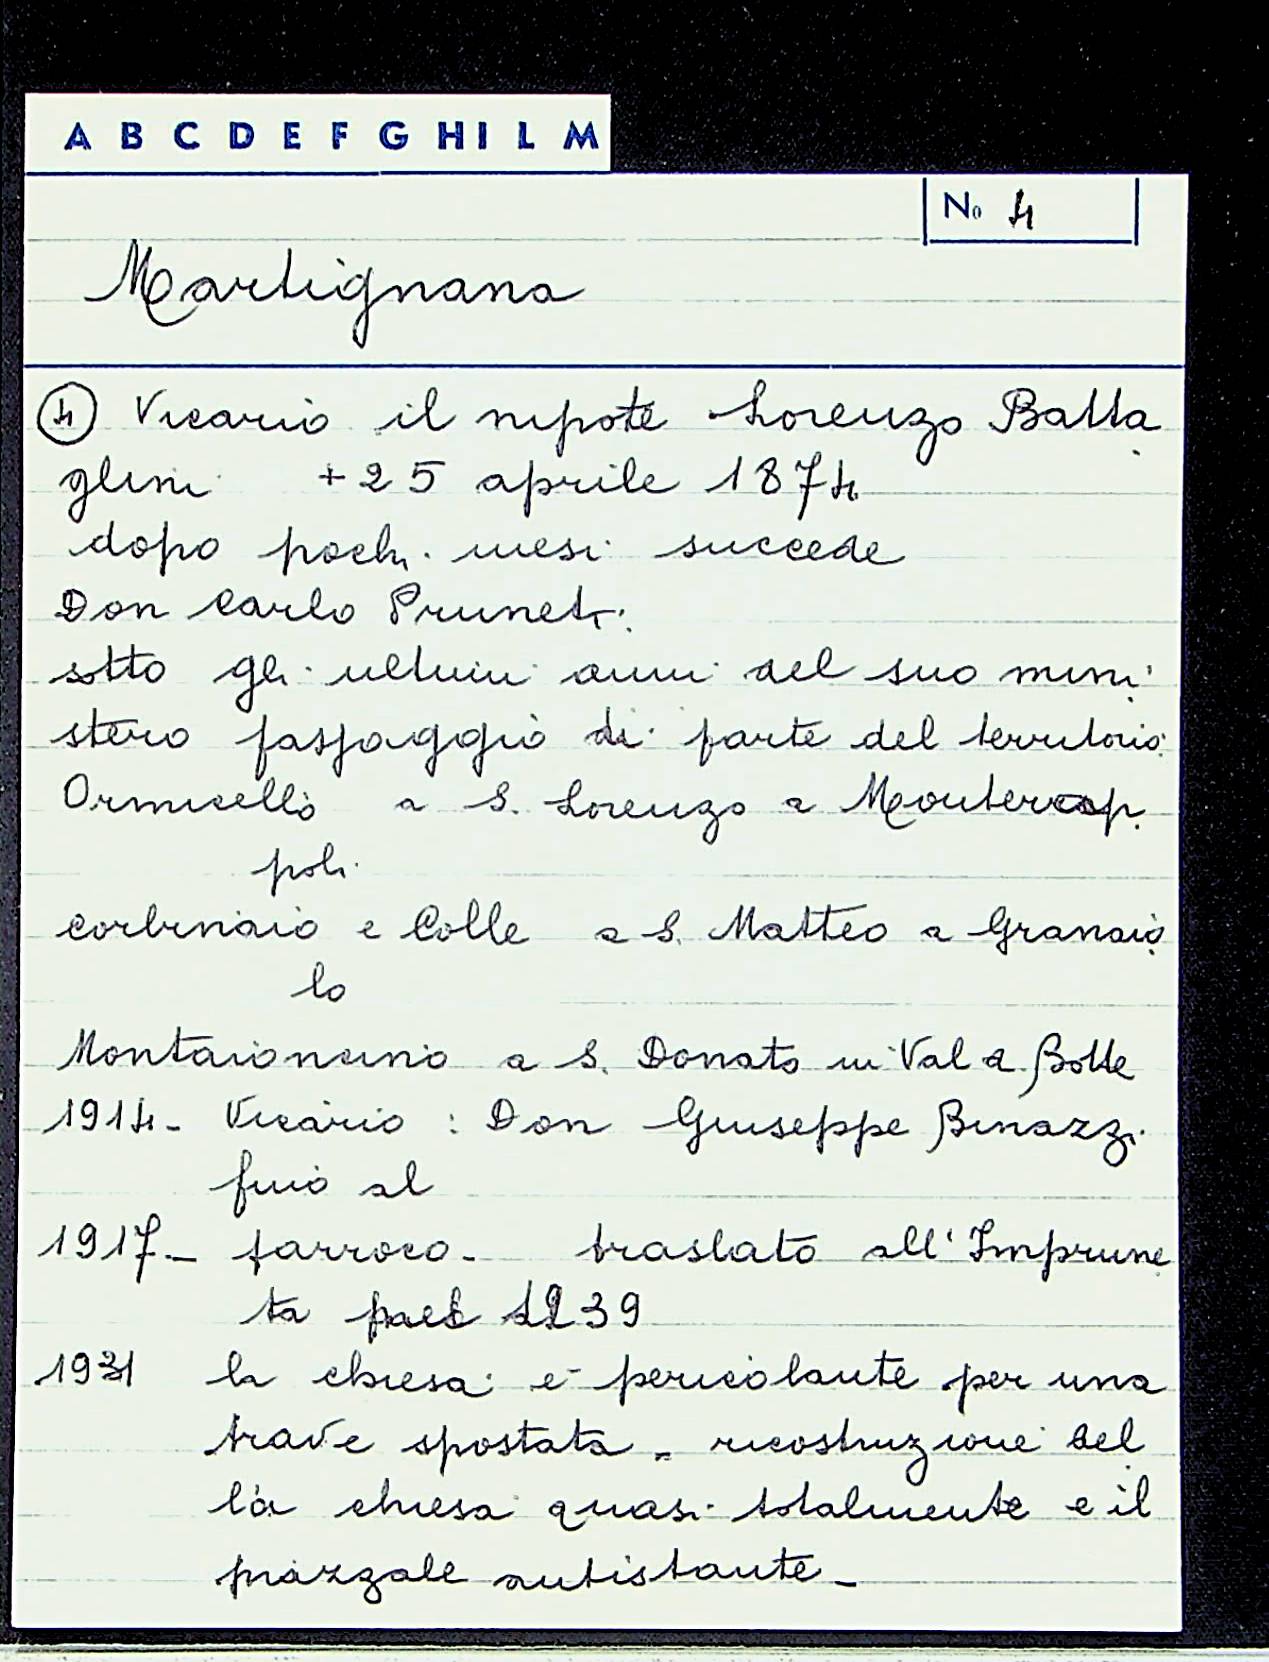 A B C D E F G H I L M
No 4
Martignana
4 Vicario il nipote Lorenzo Batta
glini +25 aprile 1874
dopo pochi mesi succede
Don Carlo Pruneti
sotto gli ultimi anni del suo mini
stero passaggio di parte del territorio
Ormicello a S. Lorenzo a Monterap
poli
corbinaio e Colle a S. Matteo a Granaio
lo
Montaioncino a S. Donato in Val di Botte
1914- Vicario: Don Giuseppe Binazzi
fino al
1917- parroco- traslato all'Imprune
ta 1939
1931 la chiesa è pericolante per una
trave spostata - ricostruzione del
la chiesa quasi totalmente e il
piazzale antistante-